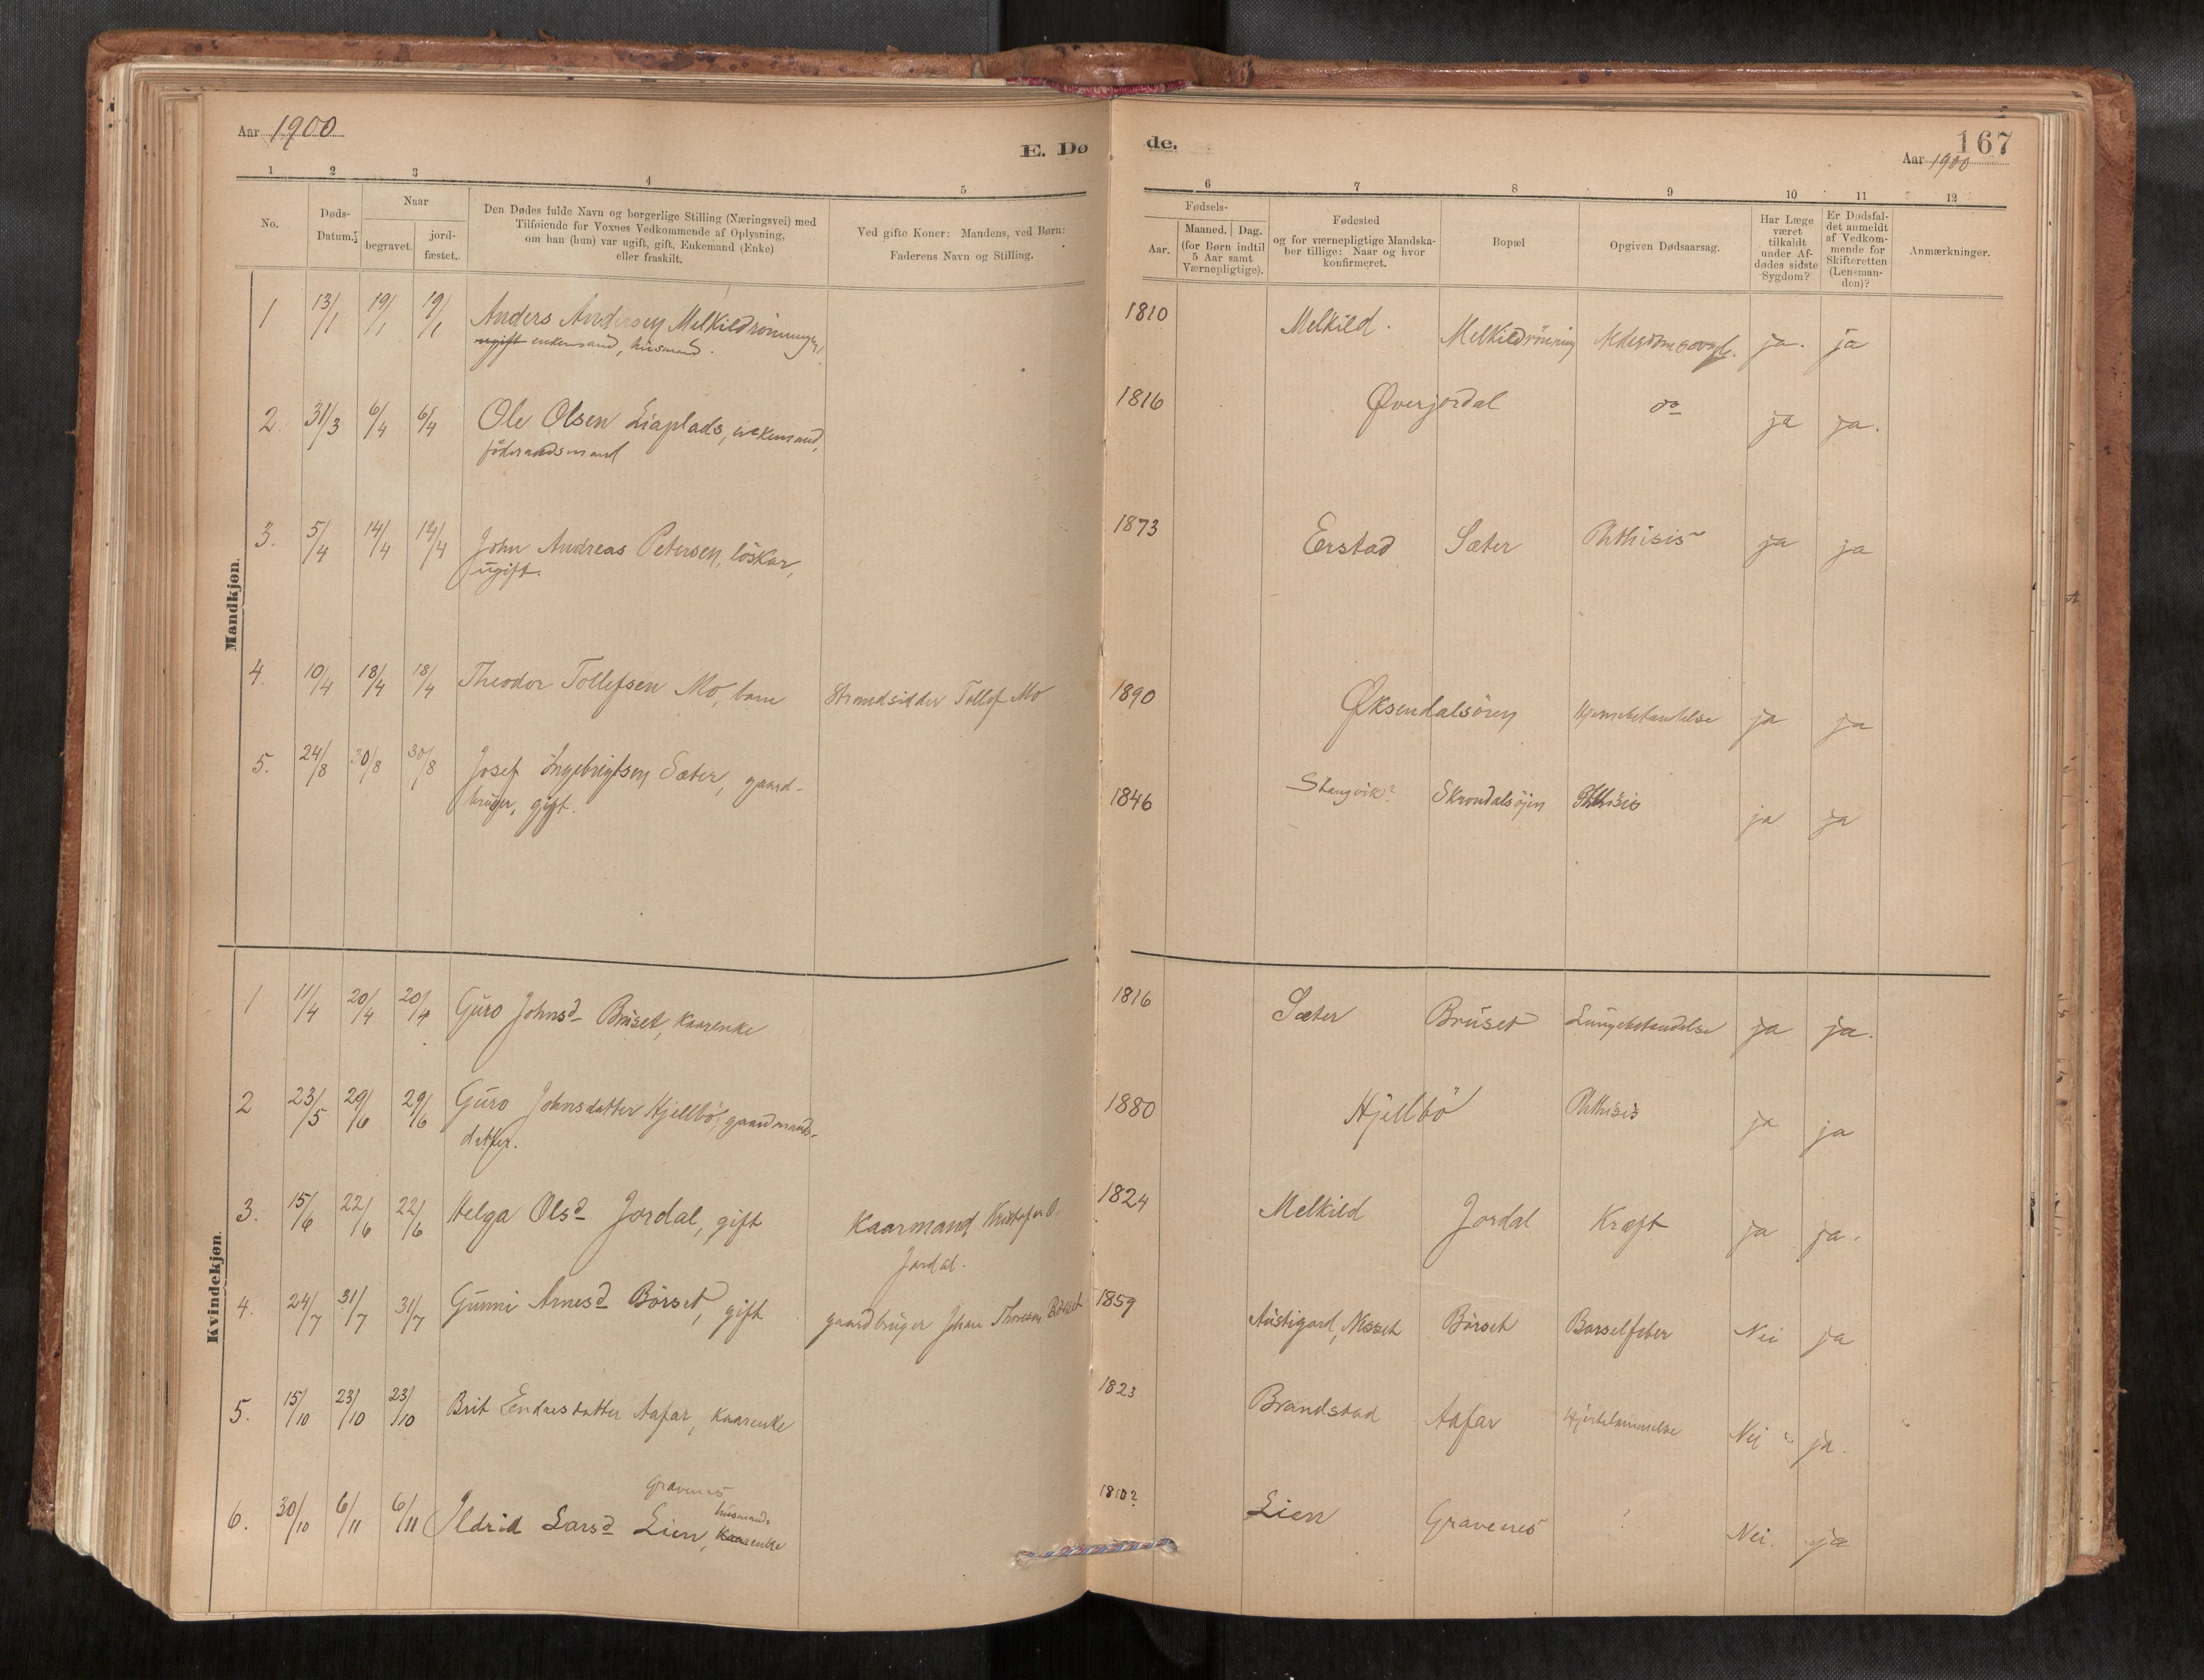 Aar 1900
E. Dø
de.
167
Aar 1900
1 2 3 4 5 6 7 8 9 10 11 12
No.
Døds-
Datum.
Naar
begravet.
jord-
fæstet.
Den Dødes fulde Navn og borgerlige Stilling (Næringsvei) med
Tilføiende for Voxnes Vedkommende af Oplysning,
om han (hun) var ugift, gift, Enkemand (Enke)
eller fraskilt.
Ved gifte Koner: Mandens, ved Børn:
Faderens Navn og Stilling.
Fødsels-
Aar.
Maaned. Dag.
(for Børn indtil
5 Aar samt
Værnepligtige).
Fødested
og for værnepligtige Mandska-
ber tillige: Naar og hvor
konfirmeret.
Bopæl
Opgiven Dødsaarsag.
Har Læge
været
tilkaldt
under Af-
dødes sidste
Sygdom?
Er Dødsfal-
det anmeldt
af Vedkom-
mende for
Skifteretten
(Lensman-
den)?
Anmærkninger.
Mandkjøn.
1 13/1 19/1 19/1 Anders Andersen Melkildrönningen, 1810 Melkild. Melkildröning ja. ja
ugift enkemand, husmand.
2. 31/3 6/4 6/4 Ole Olsen Liaplads, enkemand, 1816 Øverjordal do ja ja.
föderaadsmand
3. 5/4 14/4 14/4 John Andreas Petersen, löskar, 1873 Erstad Sæter Phthisis ja ja
ugift.
4. 10/4 18/4 18/4 Theodor Tollefsen Mo, barn Strandsidder Tollef Mo 1890 Øksendalsören Hjernebetændelse ja ja
5. 24/8 30/8 30/8 Josef Ingebrigtsen Sæter, gaard- 1846 Stangvik? Skrondalsöien Phthisis ja ja
bruger, gift.
Kvindekjøn.
1 11/4 20/4 20/4 Guro Johnsd Bruset, Kaarenke 1816 Sæter Bruset Lungebetændelse ja ja.
2 23/5 29/6 29/6 Guro Johnsdatter Hjellbö, gaardmands- 1880 Hjellbö Phthisis ja ja
datter.
3. 15/6 22/6 22/6 Helga Olsd Jordal, gift Kaarmand Kristofer O. 1824 Melkild Jordal Kræft ja ja.
Jordal.
4. 24/7 31/7 31/7 Gunni Arnesd Börset, gift gaardbruger Johan Thoresen Börset 1859 Austigard, Nesset Börset Barselfeber Nei ja
5. 15/10 23/10 23/10 Brit Endresdatter Aafar, Kaarenke 1823 Brandstad Aafar Hjertelammelse Nei ja.
Gravenes
husmands
6. 30/10 6/11 6/11 Ildrid Larsd Lien, Kaarenke 1810? Lien Gravenes ? Nei. ja